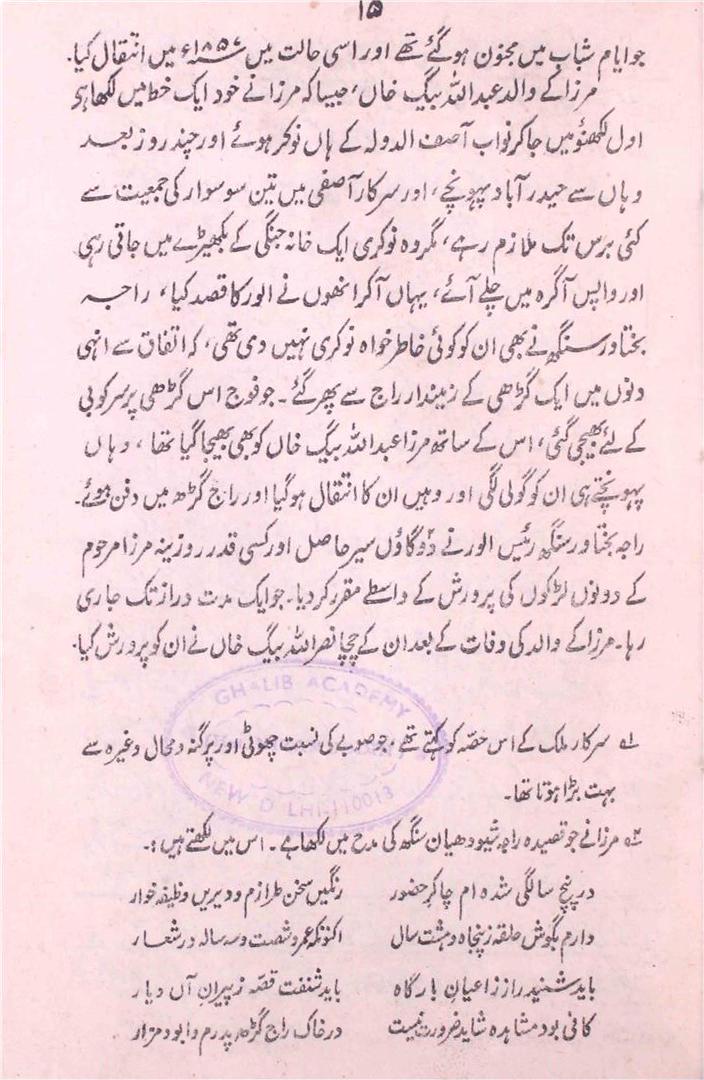 ۱۵
جو ایام شباب میں مجنون ہو گئے تھے اور اسی حالت میں ۱۸۵۷ء میں انتقال کیا۔
مرزا کے والد عبداللہ بیگ خاں، جیسا کہ مرزا نے خود ایک خط میں لکھا ہے
اول لکھنؤ میں جاکر نواب آصف الدولہ کے ہاں نوکر ہوئے اور چند روز بعد
وہاں سے حیدر آباد پہونچے، اور سرکار آصفی میں تین سو سوار کی جمعیت سے
کئی برس تک ملازم رہے، مگر وہ نوکری ایک خانہ جنگی کے بکھیڑے میں جاتی رہی
اور واپس آگرہ میں چلے آئے، یہاں آکر انھوں نے الور کا قصد کیا، راجہ
بختاور سنگھ نے بھی ان کو کوئی خاطر خواہ نوکری نہیں دی تھی، کہ اتفاق سے انہی
دنوں میں ایک گڑھی کے زمیندار راج سے پھر گئے۔ جو فوج اس گڑھی پر سرکوبی
کے لئے بھیجی گئی، اس کے ساتھ مرزا عبداللہ بیگ خاں کو بھی بھیجا گیا تھا، وہاں
پہونچتے ہی ان کو گولی لگی اور وہیں ان کا انتقال ہوگیا اور راج گڑھ میں دفن ہوئے۔
راجہ بختاور سنگھ رئیس الور نے دو گاؤں سیر حاصل اور کسی قدر روزینہ مرزا مرحوم
کے دونوں لڑکوں کی پرورش کے واسطے مقرر کر دیا۔ جو ایک مدت دراز تک جاری
رہا۔ مرزا کے والد کی وفات کے بعد ان کے چچا نصراللہ بیگ خاں نے ان کو پرورش کیا۔
GHALIB ACADEMY
NEW DELHI-110013
۱؎ سرکار ملک کے اس حصّہ کو کہتے تھے، جو صوبے کی نسبت چھوٹی اور پرگنہ و محال وغیرہ سے
بہت بڑا ہوتا تھا۔
۲؎ مرزا نے جو قصیدہ راجہ شیودھیان سنگھ کی مدح میں لکھا ہے۔ اس میں لکھتے ہیں:۔
در پنج سالگی شدہ ام چاکرِ حضور رنگیں سخن طرازم و دیریں وظیفہ خوار
دارم بگوش حلقہ ز پنجاہ و ہشت سال اکنوں کہ عمر شصت و سہ سالہ در شعار
باید شنید راز ز اعیانِ بارگاہ باید شنفت قصّہ ز پیرانِ آں دیار
کافی بود مشاہدہ شاہد ضرور نیست در خاک راج گڑھ پدرم را بود مزار